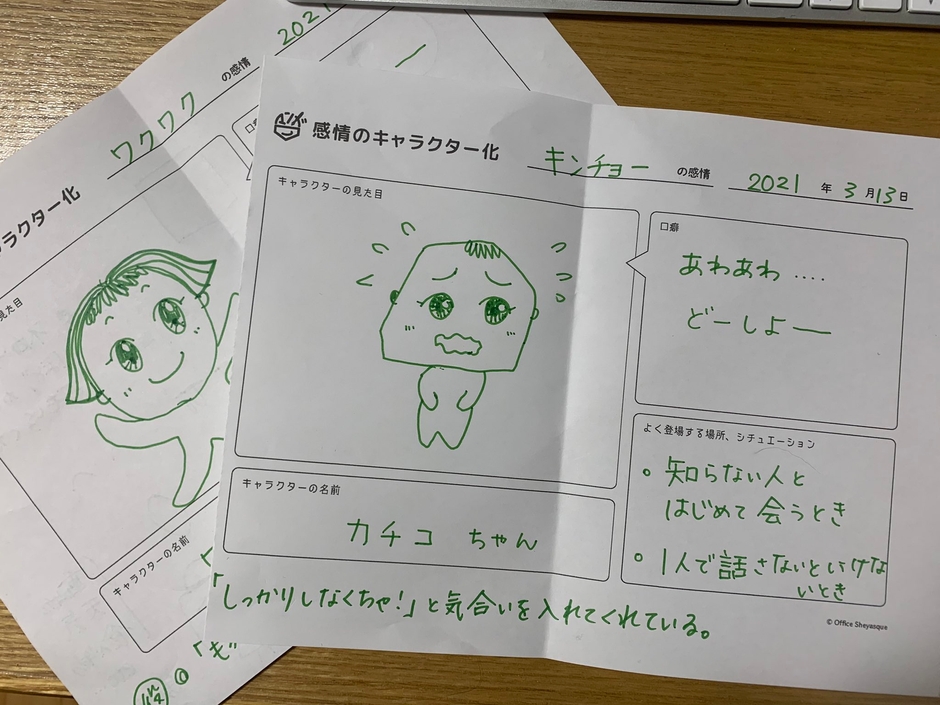 感情のキャラクター化
キンチョー の感情
2021 年 3 月 13 日
キャラクターの見た目
口癖
あわあわ ‥‥
どーしよー
よく登場する場所、シチュエーション
○ 知らない人と
はじめて 会うとき
○ 1人で話さないといけな
いとき
キャラクターの名前
カチコ ちゃん
「しっかりしなくちゃ!」と気合いを入れてくれている。
© Office Sheyasque
ラクター化
ワクワク の感情
2021
口
見た目
キャラクターの名前
「も